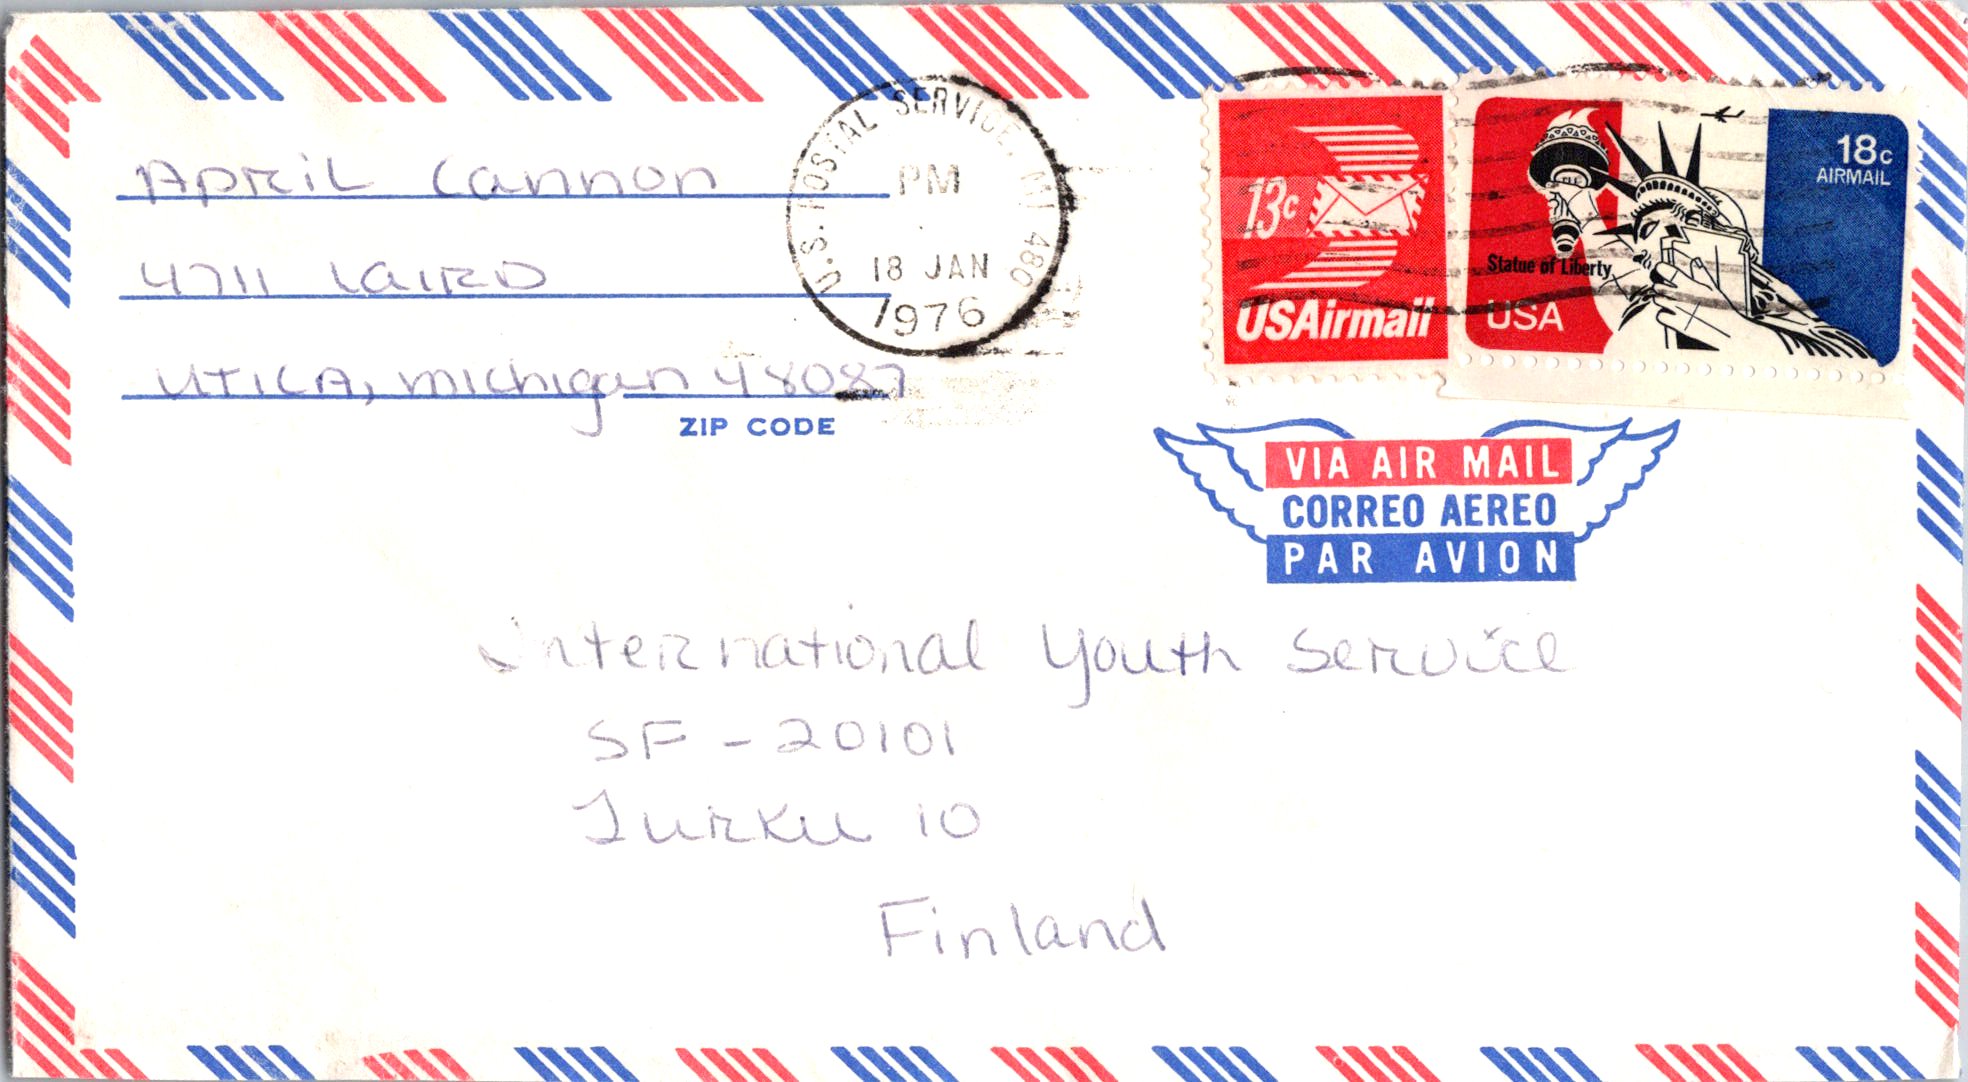 April Cannon
4711 Laird
Utica, Michigan 48087
ZIP CODE
U.S. POSTAL SERVICE, MI 480
PM
18 JAN
1976
13c
USAirmail
18c
AIRMAIL
Statue of Liberty
USA
VIA AIR MAIL
CORREO AEREO
PAR AVION
International Youth Service
SF - 20101
Turku 10
Finland